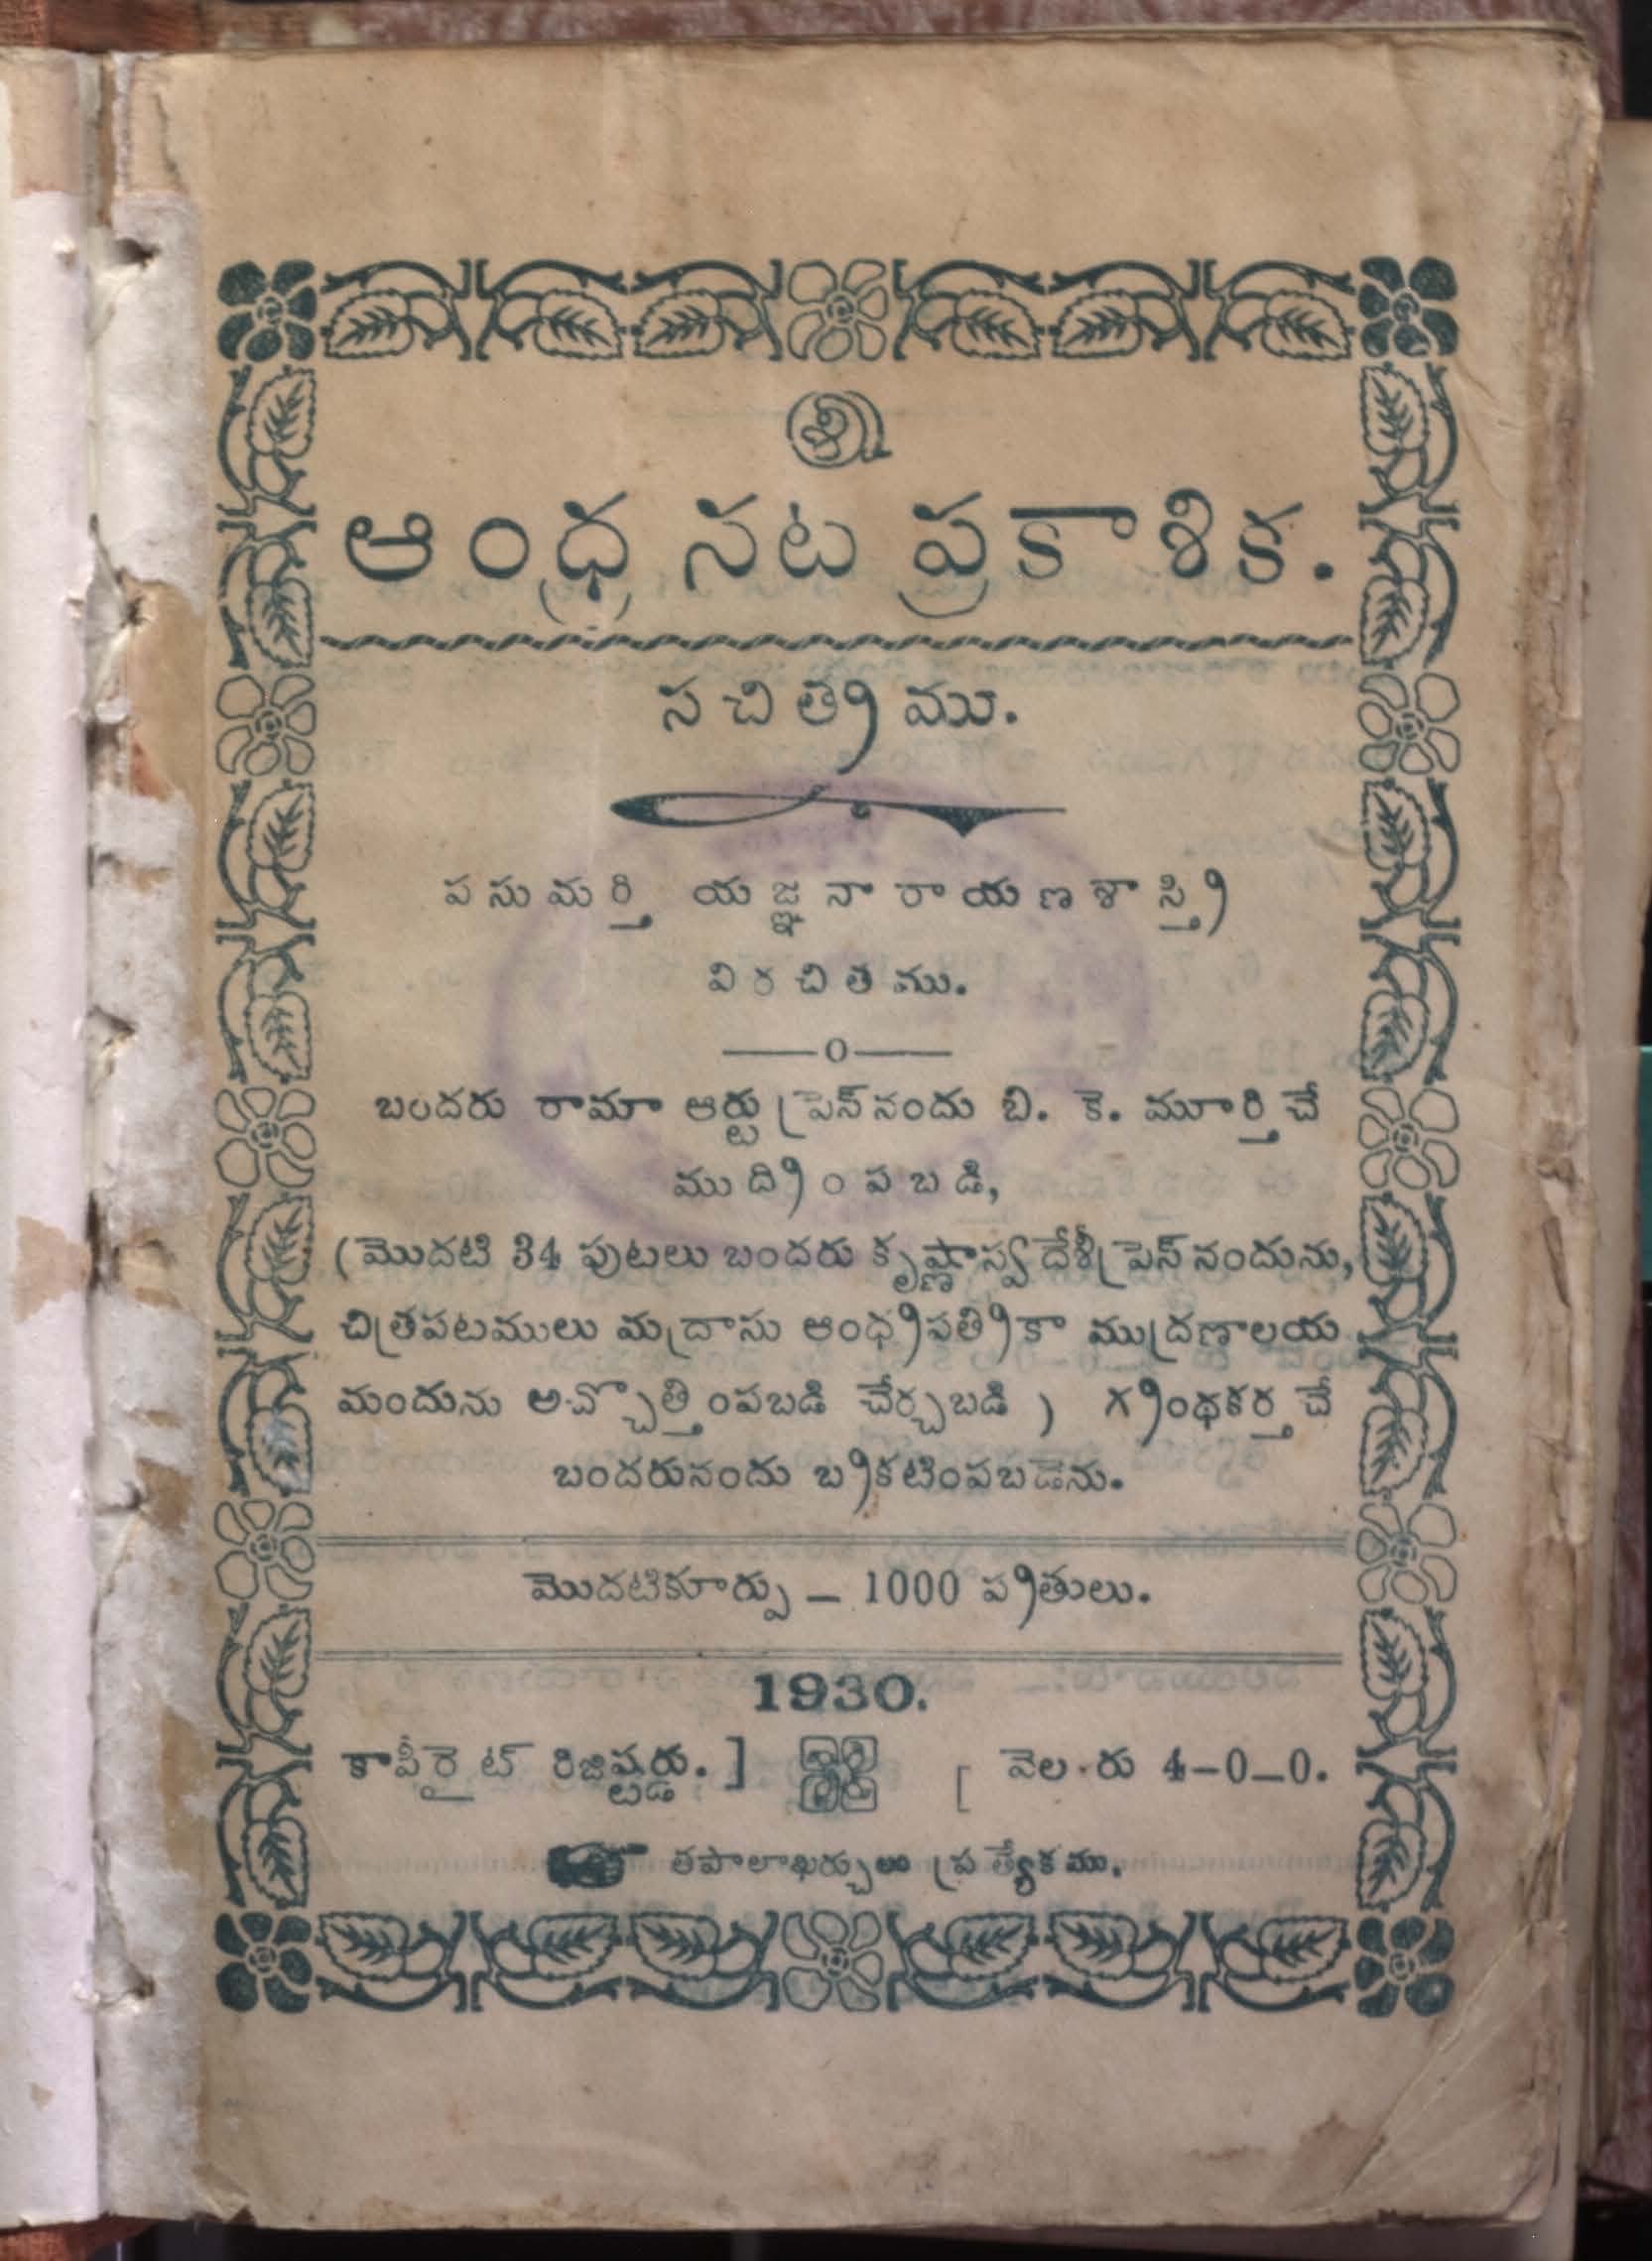 శ్రీ
ఆంధ్ర నట ప్రకాశిక.
సచిత్రము.
పసుమర్తి యజ్ఞనారాయణశాస్త్రి
విరచితము.
—o—
బందరు రామా ఆర్టు ప్రెస్‌నందు బి. కె. మూర్తిచే
ముద్రింపబడి,
(మొదటి 34 పుటలు బందరు కృష్ణాస్వదేశీ ప్రెస్ నందును,
చిత్రపటములు మద్రాసు ఆంధ్రపత్రికా ముద్రణాలయ
మందును అచ్చొత్తింపబడి చేర్చబడి ) గ్రంథకర్తచే
బందరునందు బ్రకటింపబడెను.
మొదటికూర్పు — 1000 ప్రతులు.
1930.
కాపీరైట్ రిజిష్టర్డు. ] [ వెల రు 4—0—0.
తపాలాఖర్చులు ప్రత్యేకము.